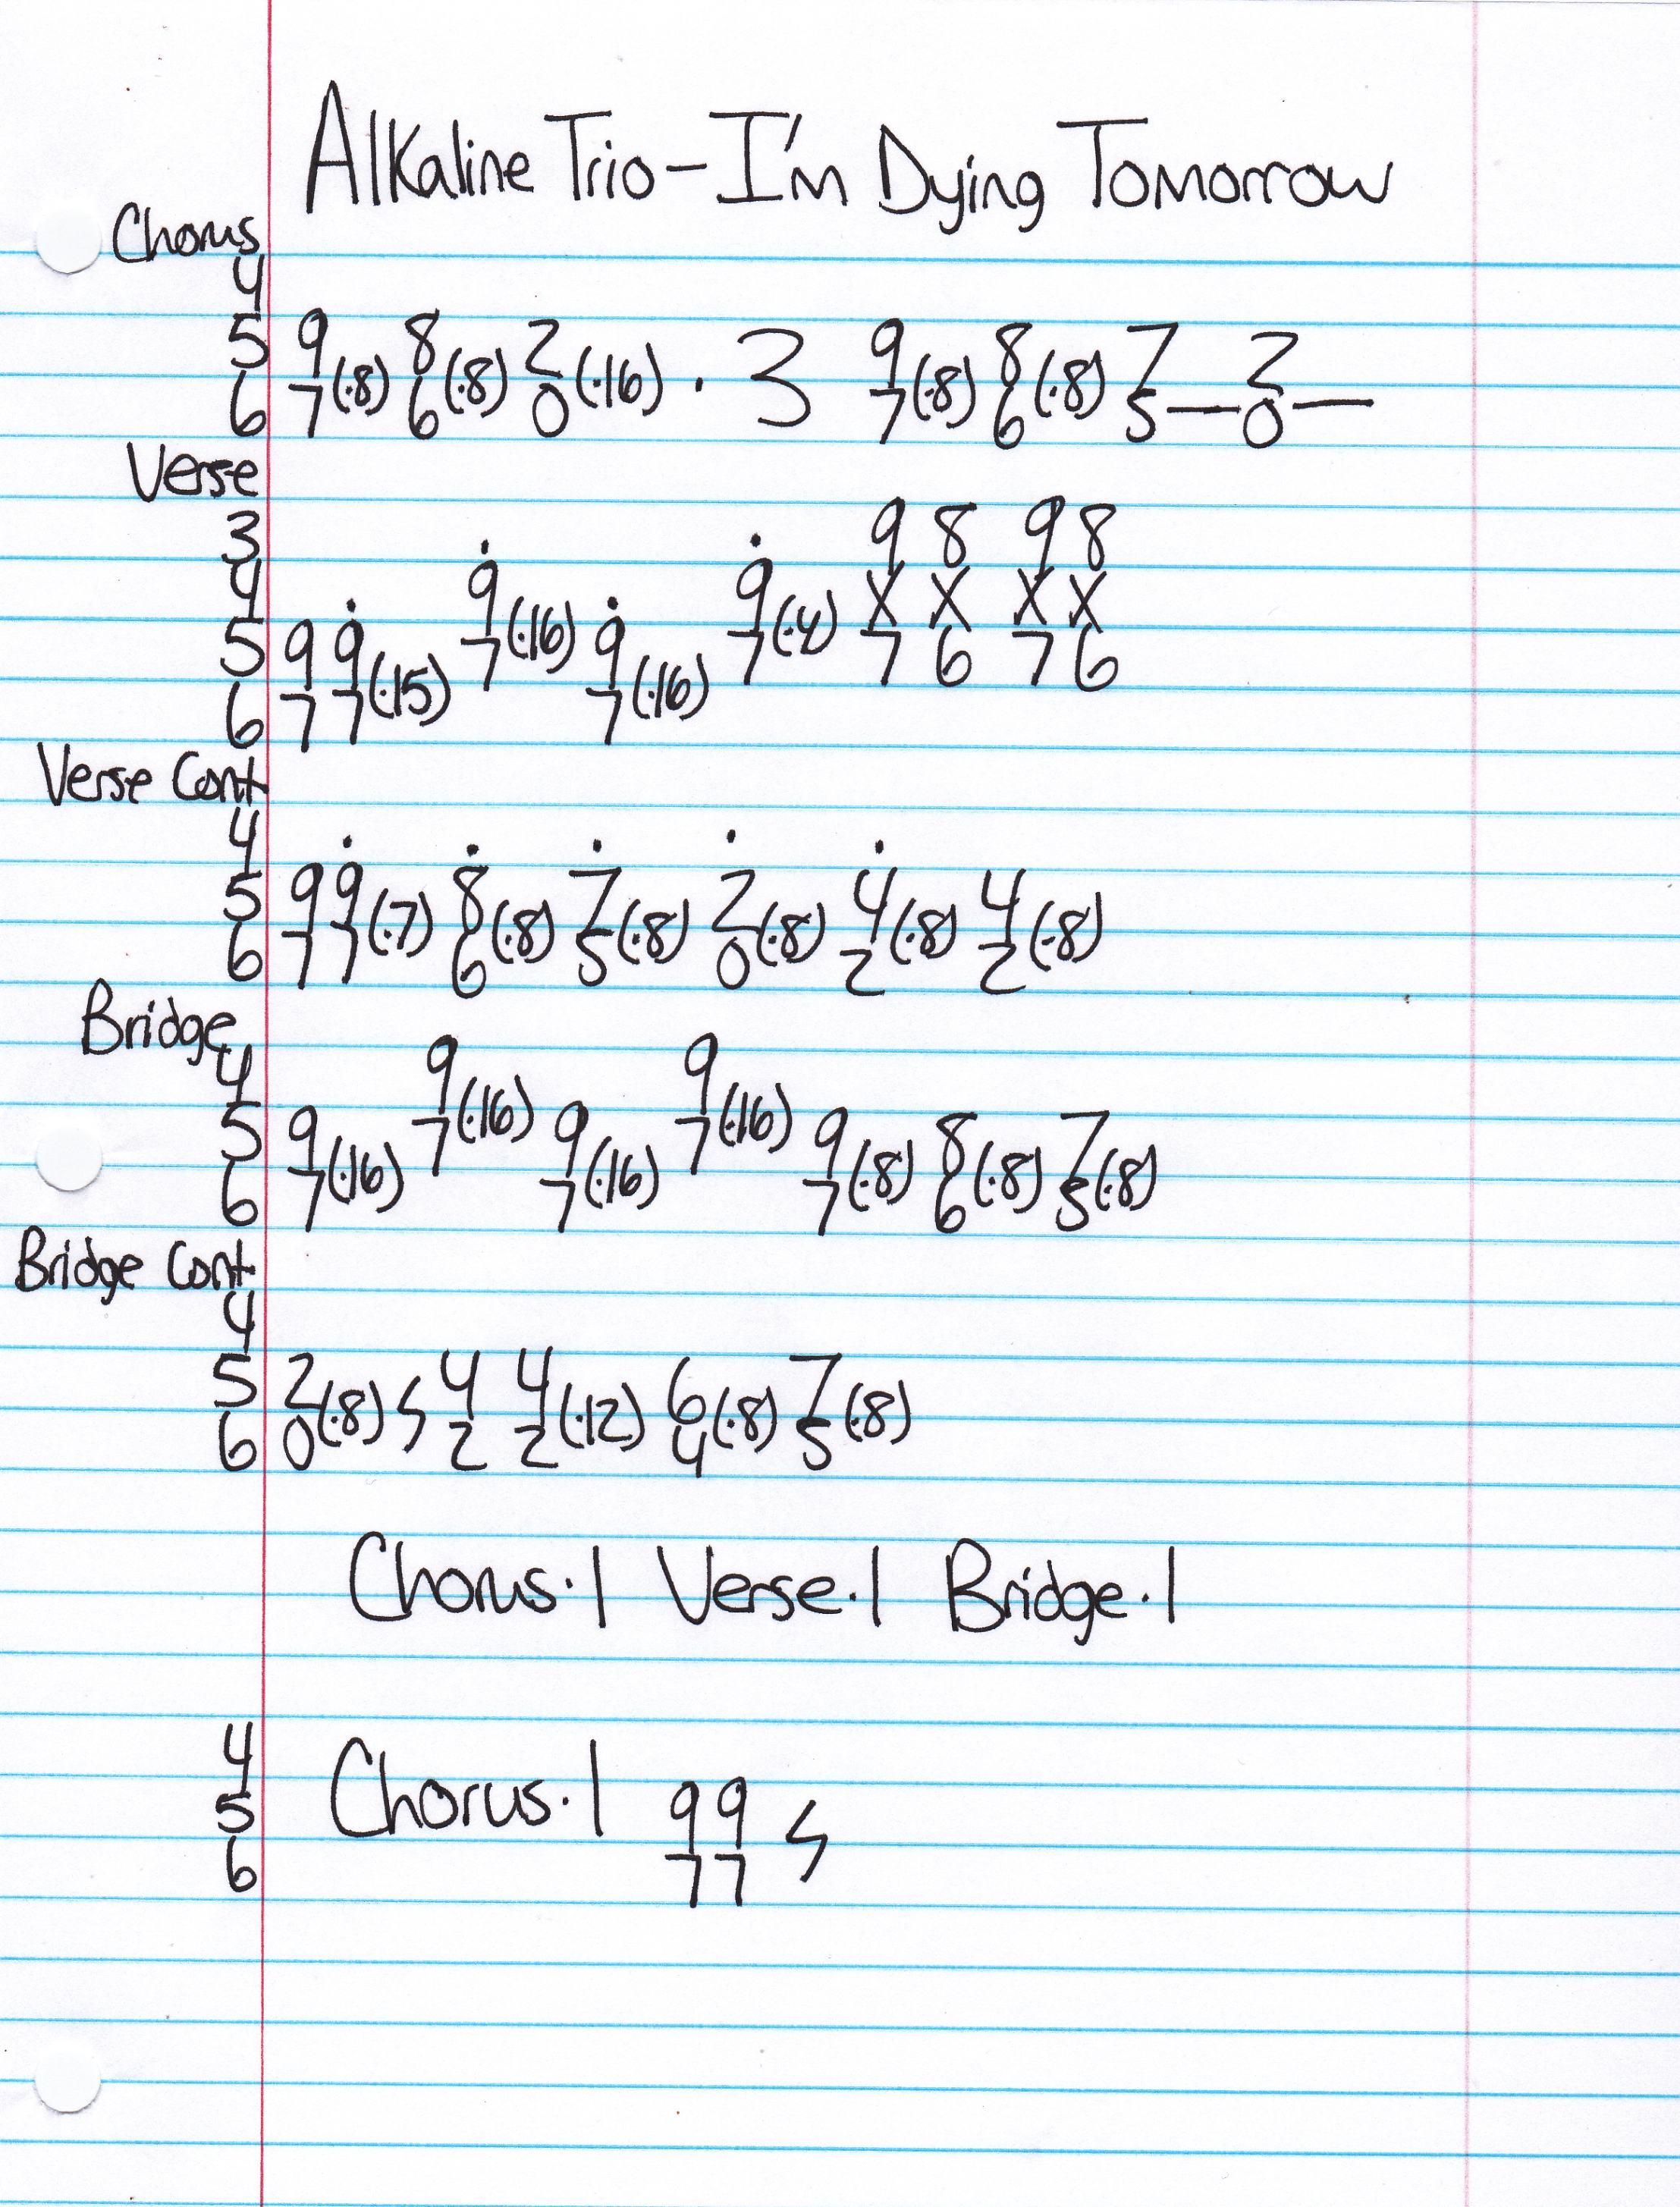 Alkaline Trio - I'm Dying Tomorrow
Chorus
4
5 9 8 2 9 8 7 2
(·8) (·8) (·16) · 3 (·8) (·8) — —
6 7 6 0 7 6 5 0
Verse
3 9 8 9 8
4 9 (·16) 9 (·4) x x x x
5 9 9 7 9 7 7 6 7 6
(·15) (·16)
6 7 7 7
Verse Cont
4
5 9 9 8 7 2 4 4
(·7) (·8) (·8) (·8) (·8) (·8)
6 7 7 6 5 0 2 2
Bridge
4 9 (·16) 9 (·16)
5 9 7 9 7 9 8 7
(·16) (·16) (·8) (·8) (·8)
6 7 7 7 6 5
Bridge Cont
4
5 2 4 4 6 7
(·8) (·12) (·8) (·8)
6 0 2 2 4 5
Chorus·1 Verse·1 Bridge·1
4
5 Chorus·1 9 9
6 7 7